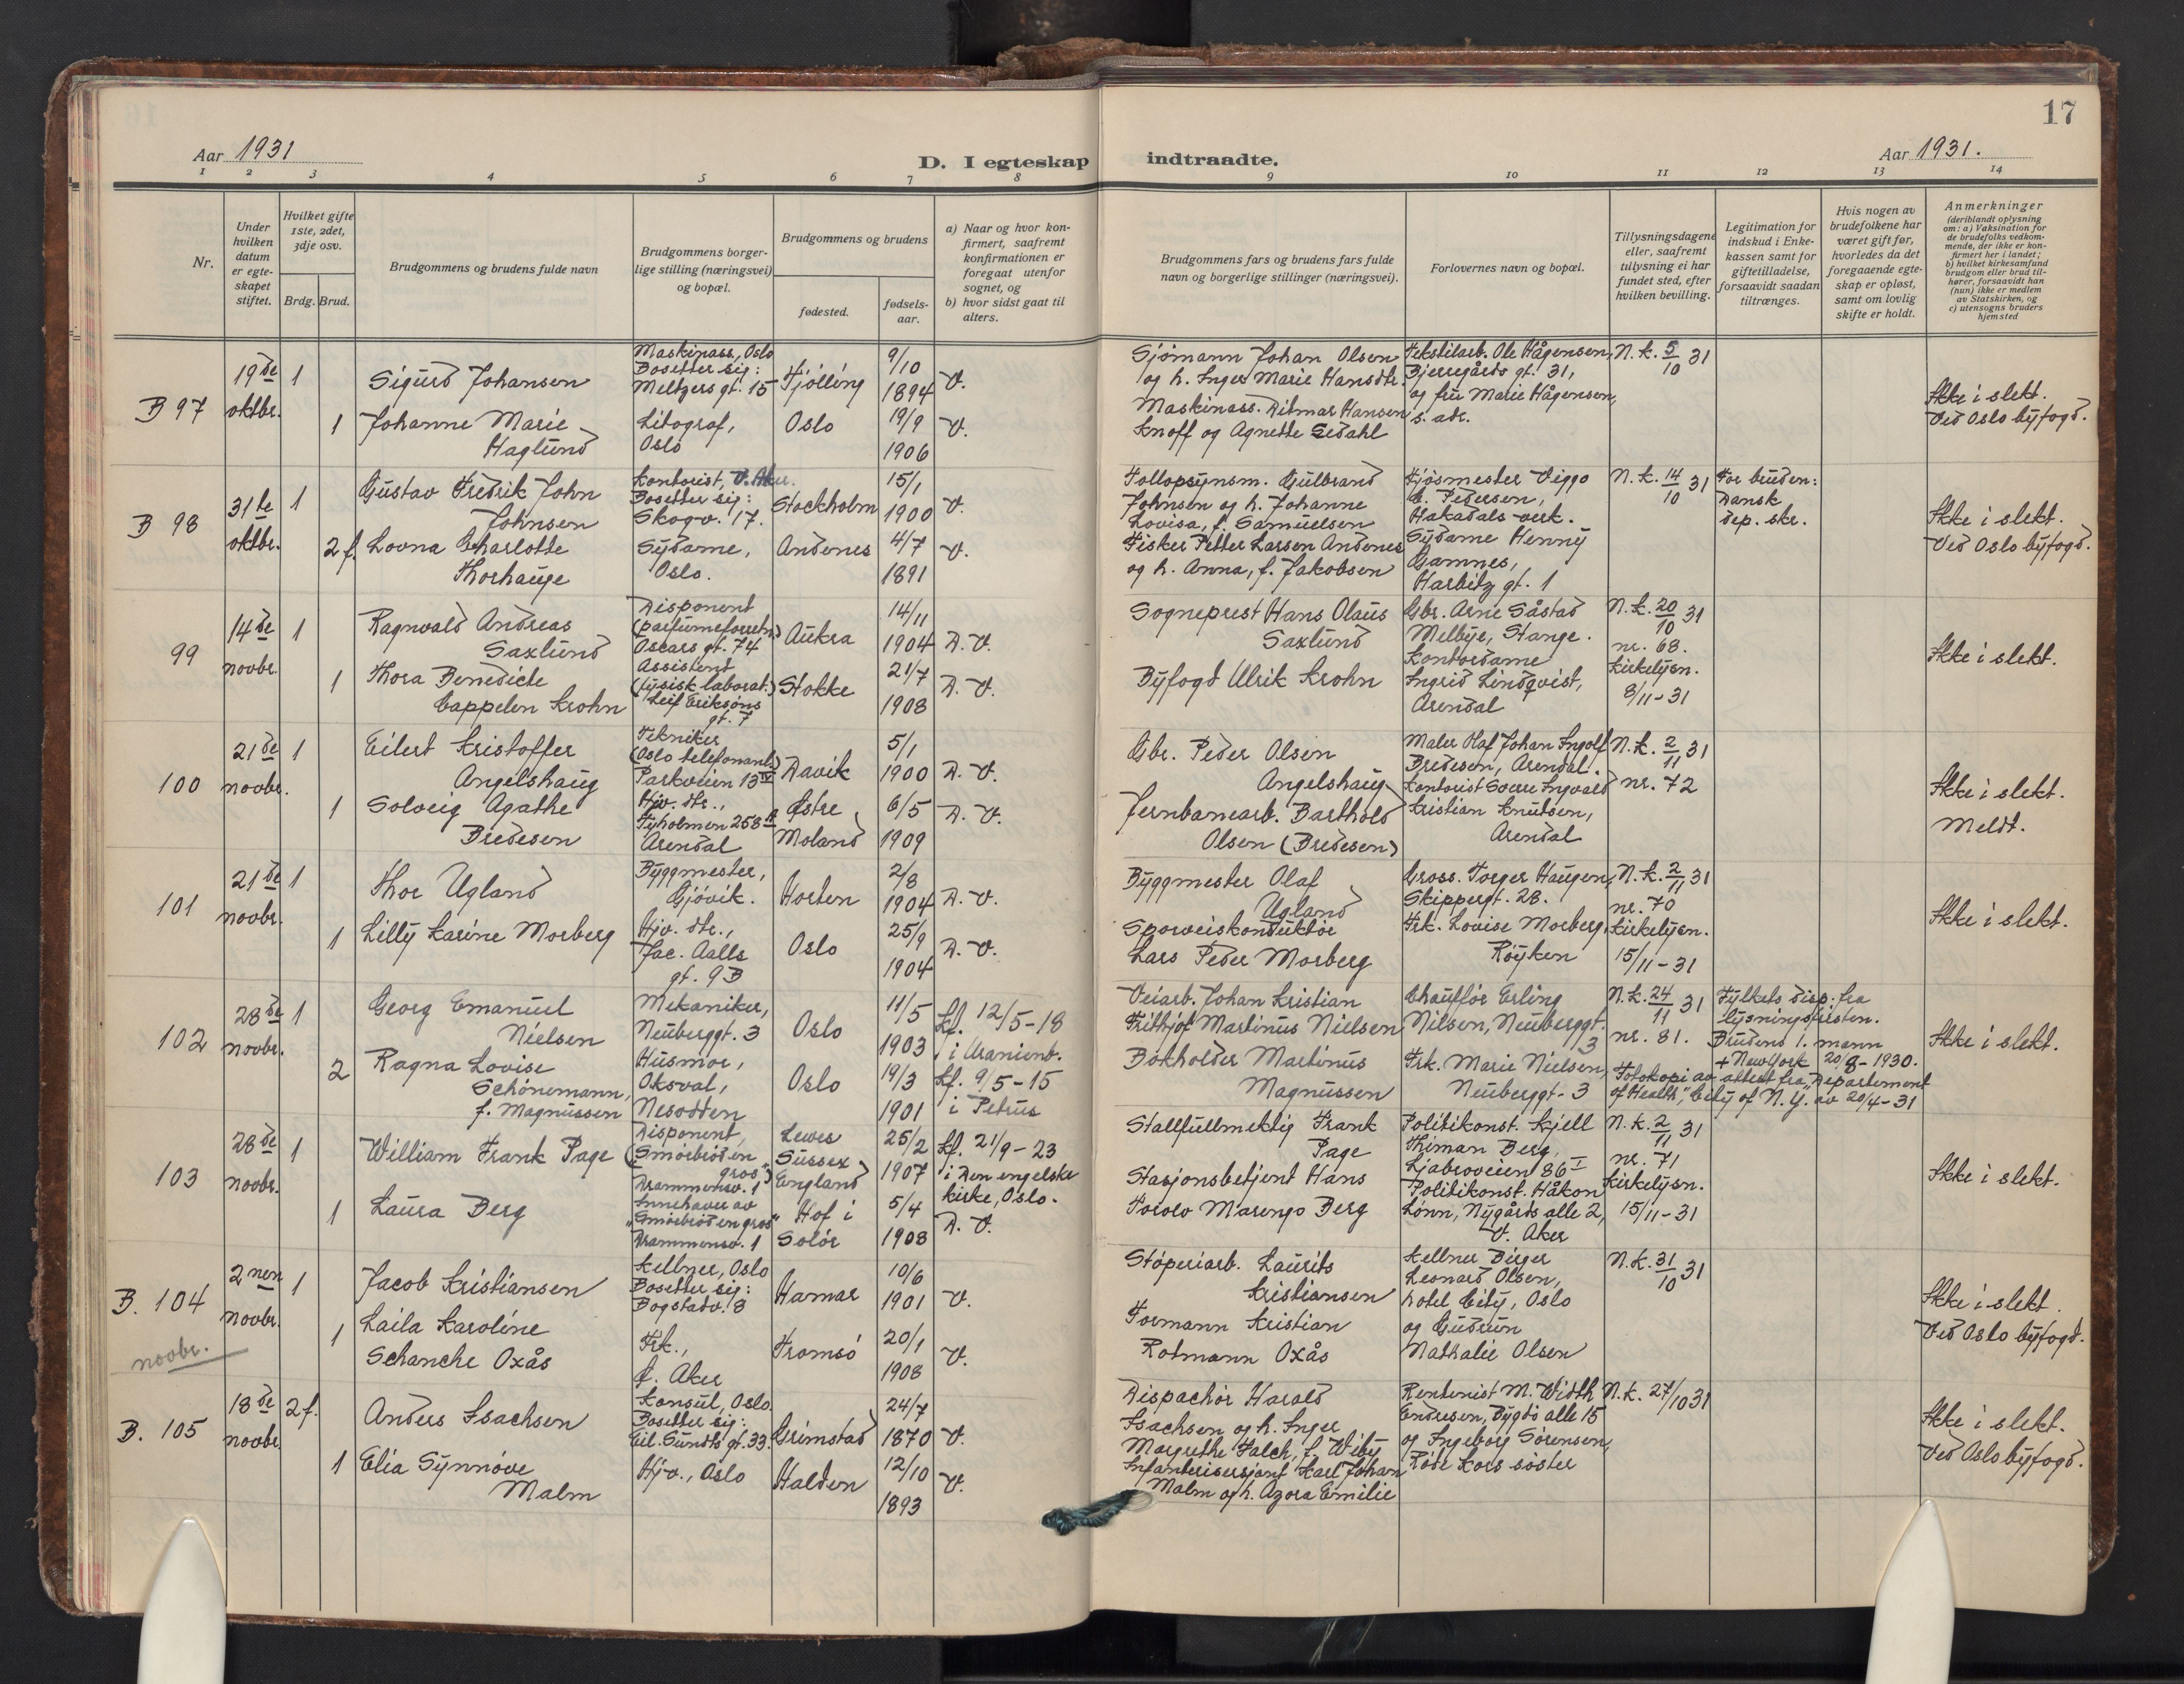 17
Aar 1931
D. I egteskap indtraadte.
Aar 1931.
1 2 3 4 5 6 7 8 9 10 11 12 13 14
Nr.
Under hvilken datum er egteskapet stiftet.
Hvilket gifte 1ste, 2det, 3dje osv.
Brdg. Brud.
Brudgommens og brudens fulde navn
Brudgommens borgerlige stilling (næringsvei) og bopæl.
Brudgommens og brudens
fødested.
fødselsaar.
a) Naar og hvor konfirmert, saafremt konfirmationen er foregaat utenfor sognet, og
b) hvor sidst gaat til alters.
Brudgommens fars og brudens fars fulde navn og borgerlige stillinger (næringsvei).
Forlovernes navn og bopæl.
Tillysningsdagene eller, saafremt tillysning ei har fundet sted, efter hvilken bevilling.
Legitimation for indskud i Enkekassen samt for giftetilladelse, forsaavidt saadan tiltrænges.
Hvis nogen av brudefolkene har været gift før, hvorledes da det foregaaende egteskap er opløst, samt om lovlig skifte er holdt.
Anmerkninger
(deriblandt oplysning om: a) Vaksination for de brudefolks vedkommende, der ikke er konfirmert her i landet; b) hvilket kirkesamfund brudgom eller brud tilhører, forsaavidt han (hun) ikke er medlem av Statskirken, og c) utensogns bruders hjemsted
B 97
19de oktbr.
1
Sigurd Johansen
Maskinass., Oslo
Bosetter sig:
Meltzers gt. 15
Tjølling
9/10 1894
V.
1
Johanne Marie Haglund
Litograf, Oslo
Oslo
19/9 1906
V.
Sjømann Johan Olsen
og h. Inger Marie Hansdtr.
Maskinass. Ditmar Hansen
Knoff og Agnethe Sedahl
Tekstilarb. Ole Hågensen,
Bjerregårds gt. 31,
og fru Marie Hågensen,
s. adr.
N.k. 5/10 31
Ikke i slekt.
Ved Oslo byfogd.
B 98
31te oktbr.
1
Gustav Fredrik John Johnsen
Kontorist, V. Aker.
Bosetter sig:
Skogv. 17.
Stockholm
15/1 1900
V.
2 f.
Lovna Charlotte Thorhauge
Sydame, Oslo.
Andenes
4/7 1891
V.
Tollopsynsm. Gulbrand
Johnsen og h. Johanne
Lovisa, f. Samuelsen
Fisker Petter Larsen Andenes
og h. Anna, f. Jakobsen
Fjøsmester Viggo
C. Pedersen,
Hakadals-verk.
Sydame Henny
Gamnes,
Harbitz gt. 1
N.k. 14/10 31
For bruden:
Dansk
sep. skr.
Ikke i slekt.
Ved Oslo byfogd.
99
14de novbr.
1
Ragnvald Andreas Saxlund
Disponent
(parfumeforretn.)
Oscars gt. 74
Aukra
14/11 1904
D. V.
1
Thora Benedicte Cappelen Krohn
Assistent
(fysisk laborat.)
Leif Eriksons gt. 7
Stokke
21/7 1908
D. V.
Sogneprest Hans Olaus Saxlund
Byfogd Ulrik Krohn
Gbr. Arne Såstad
Melbye, Stange.
Kontordame
Ingrid Lindqvist,
Arendal
N.k. 20/10 31
nr. 68.
Kirkelysn.
8/11-31
Ikke i slekt.
100
21de novbr.
1
Eilert Kristoffer Angelshaug
Tekniker
(Oslo telefonanl.)
Parkveien 13 IV
Davik
5/1 1900
D. V.
1
Solveig Agathe Bredesen
Hjv. dtr.,
Tyholmen 258
Arendal
Østre Moland
6/5 1909
D. V.
Gbr. Peder Olsen Angelshaug
Jernbanearb. Barthold
Olsen (Bredesen)
Maler Olaf Johan Ingolf
Bredesen, Arendal.
Kontorist Sverre Ingvald
Kristian Knutsen,
Arendal
N.k. 2/11 31
nr. 72
Ikke i slekt.
Meldt.
101
21de novbr.
1
Thor Ugland
Byggmester,
Gjøvik.
Horten
2/8 1904
D. V.
1
Lilly Karine Morberg
Hjv. dtr.,
Jac. Aalls
gt. 9 B
Oslo
25/9 1904
D. V.
Byggmester Olaf Ugland
Sporveiskonduktør
Lars Peder Morberg
Gross. Torger Haugen,
Skippergt. 28.
Frk. Lovise Morberg,
Røyken
N.k. 2/11 31
nr. 70
Kirkelysn.
15/11-31
Ikke i slekt.
102
28de novbr.
1
Georg Emanuel Nielsen
Mekaniker,
Neuberggt. 3
Oslo
11/5 1903
Kf. 12/5-18
i Uranienb.
2
Ragna Lovise
Schönemann,
f. Magnussen
Husmor,
Oksval,
Nesodden
Oslo
19/3 1901
Kf. 9/5-15
i Petrus
Veiarb. Johan Kristian
Frithjof Martinus Nielsen
Bokholder Martinus
Magnussen
Chauffør Erling
Nilsen, Neuberggt. 3
Frk. Marie Nielsen,
Neuberggt. 3
N.k. 24/11 31
nr. 81.
Fylkets disp. fra
lysningsfristen.
Brudens 1. mann
+ New York 20/8-1930.
Fotokopi av attest fra "Departement
of Health", City of N.Y. av 20/4-31
Ikke i slekt.
103
28de novbr.
1
William Frank Page
Disponent,
(Smørbrød en gros")
Drammensv. 1
Lewes
Sussex
England
25/2 1907
Kf. 21/9-23
i Den engelske
kirke, Oslo.
1
Laura Berg
Innehaver av
"Smørbrød en gros"
Drammensv. 1
Hof i Solør
5/4 1908
D. V.
Stallfullmektig Frank Page
Stasjonsbetjent Hans
Torolv Marengo Berg
Politikonst. Kjell
Thiman Berg,
Ljabroveien 86 I
Politikonst. Håkon
Lønn, Nygårds alle 2,
V. Aker
N.k. 2/11 31
nr. 71
Kirkelysn.
15/11-31
Ikke i slekt.
B. 104
novbr.
2nen novbr.
1
Jacob Kristiansen
Kellner, Oslo
Bosetter sig:
Bogstadv. 8
Hamar
10/6 1901
V.
1
Laila Karoline
Schanche Oxås
Frk.,
Ø. Aker
Tromsø
20/1 1908
V.
Støperiarb. Laurits Kristiansen
Formann Kristian
Rotmann Oxås
Kellner Birger
Leonard Olsen,
hotel City, Oslo
og Gudrun
Nathalie Olsen
N.k. 31/10 31
Ikke i slekt.
Ved Oslo byfogd.
B. 105
18de novbr.
2 f.
Anders Isachsen
Konsul, Oslo.
Bosetter sig:
Eil. Sundts gt. 33.
Grimstad
24/7 1870
V.
1
Elia Synnøve Malm
Hjv., Oslo
Halden
12/10 1893
V.
Dispachør Harald
Isachsen og h. Inger
Margrethe Falch, f. Wiby
Infanterisersjant Karl Johan
Malm og h. Azora Emilie
Rentenist M. Width
Endresen, Bygdø alle 15
og Ingeborg Sørensen,
Røde Kors søster
N.k. 27/10 31
Ikke i slekt.
Ved Oslo byfogd.